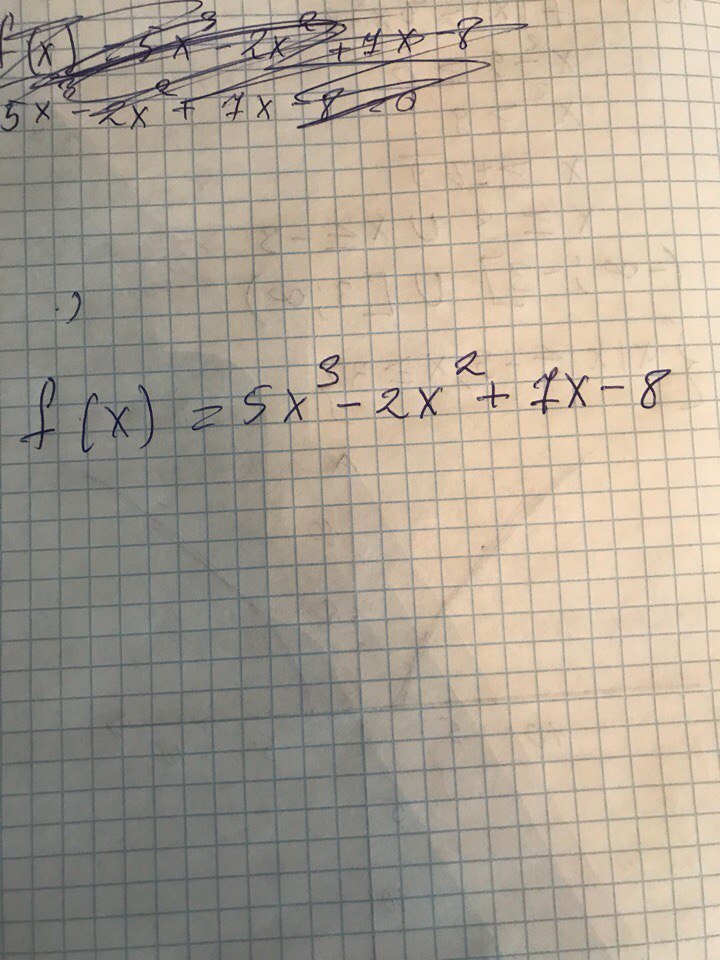 f(x) = 5x³ - 2x² + 7x - 8
5x³ - 2x² + 7x - 8 = 0
f(x) = 5x³ - 2x² + 7x - 8